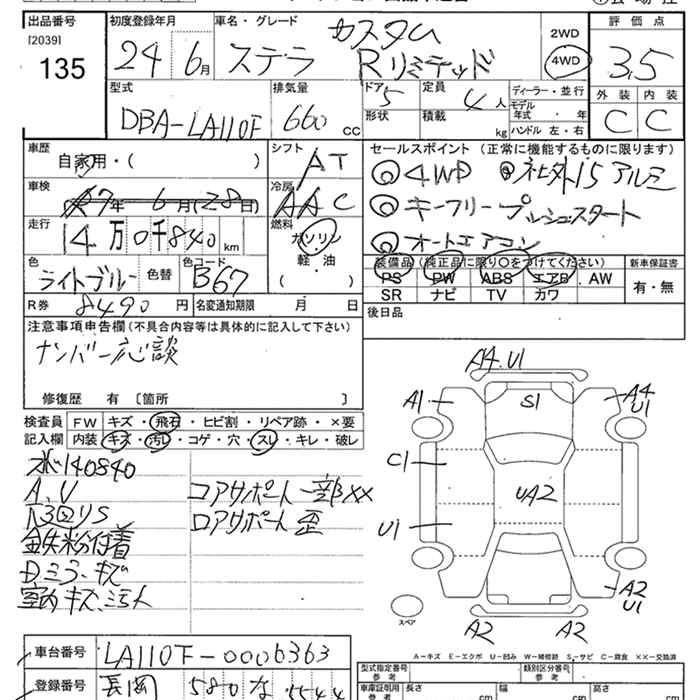 出品番号 初度登録年月 車名・グレード 評価点
[2039]
135 24 6月 ステラ カスタム Rリミテッド 2WD 4WD 3.5
型式 排気量 ドア 定員 ディーラー・並行 外装 内装
DBA-LA110F 660 CC 5 4人 モデル年式・年 C C
形状 積載 kg ハンドル 左・右
車歴 シフト セールスポイント(正常に機能するものに限ります)
自家用・( ) AT ◎4WD ◎社外15アルミ
車検 冷房 ◎キーフリー プッシュスタート
7年 6月(28日) AAC ◎オートエアコン
走行 燃料
14万0千840km ガソリン
軽・油
( )
装備品(純正品に限り○をつけてください) 新車保証書
色 色替 色コード PS PW ABS エアB AW 有・無
ライトブルー B67 SR ナビ TV カワ
R券 8490円 名変通知期限 月 日 後日品
注意事項申告欄(不具合内容等は具体的に記入して下さい)
ナンバー応談
修復歴 有 [箇所 ]
検査員 FW キズ・飛石・ヒビ割・リペア跡・×要
記入欄 内装 キズ・汚レ・コゲ・穴・スレ・キレ・破レ
A4.U1
A1 S1 A4
U1
C1
UA2
U1
A2
U1
A2 A2
スペア
メ140840
A、U コアサポート一部××
下回リS コアサポート歪
鉄粉付着
Dミラーキズ
室内キズ、汚れ
A-キズ E-エクボ U-凹み W-補修跡 S-サビ C-腐食 ××-交換済
車台番号 LA110F-0006363
登録番号 長岡 580 な 5544
型式指定番号 参考 類別区分番号 参考
車庫証明用 参考 長さ cm 幅 cm 高さ cm